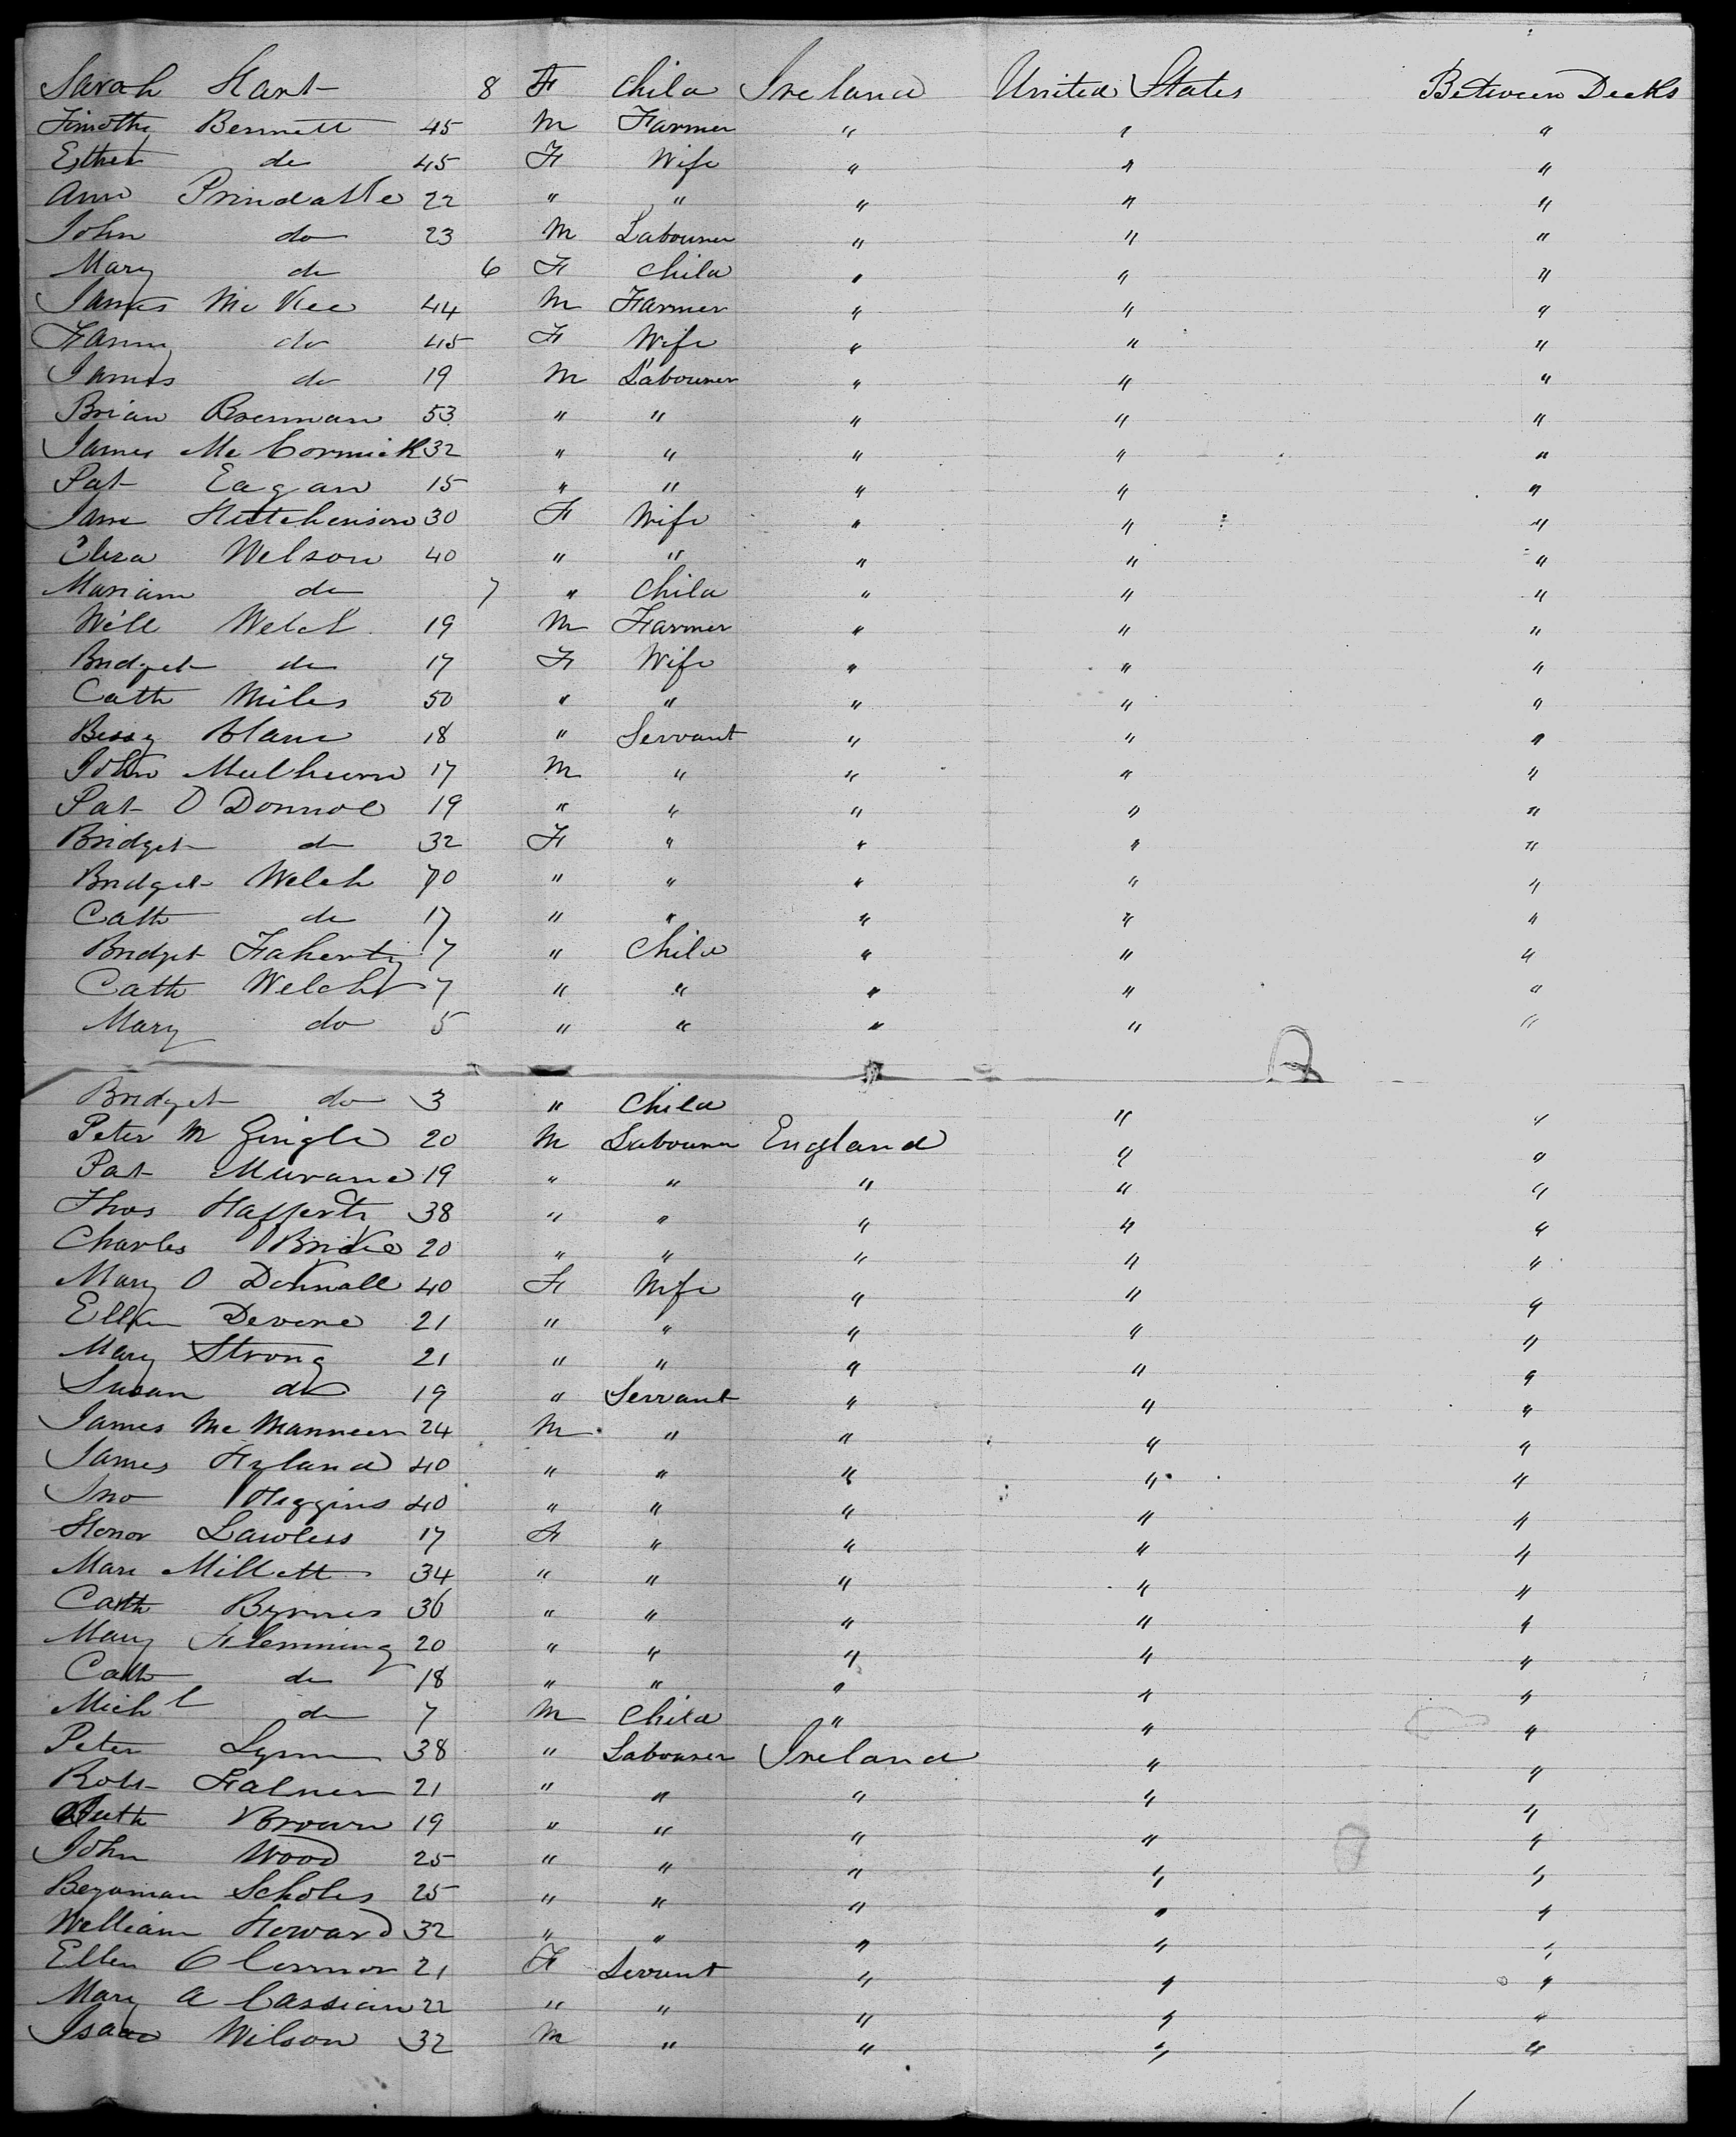 Sarah Hart 8 F Child Ireland United States Between Decks
Timothy Bennett 45 M Farmer " " "
Esther do 45 F Wife " " "
Ann Prindable 22 " " " " "
John do 23 M Labourer " " "
Mary do 6 F Child " " "
James McKee 44 M Farmer " " "
Fanny do 45 F Wife " " "
James do 19 M Labourer " " "
Brian Brennan 53 " " " " "
James McCormick 32 " " " " "
Pat Eagan 15 " " " " "
Jane Hutchenson 30 F Wife " " "
Eliza Welson 40 " " " " "
Mariam do 7 " Child " " "
Will Welch 19 M Farmer " " "
Bridget do 17 F Wife " " "
Cath Miles 50 " " " " "
Bessy 18 " Servant " " "
John Mulhern 17 M " " " "
Pat O Donnol 19 " " " " "
Bridget do 32 F " " " "
Bridget Welch 70 " " " " "
Cath do 17 " " " " "
Bridget Faherty 7 " Child " " "
Cath Welch 7 " " " " "
Mary do 5 " " " " "
Bridget do 3 " Child " "
Peter M Gingle 20 M Labourer England " "
Pat Murane 19 " " " " "
Thos Hafferty 38 " " " " "
Charles 20 " " " " "
Mary O Donnall 40 F Wife " " "
Ellen Devine 21 " " " " "
Mary Strong 21 " " " " "
Susan do 19 " Servant " " "
James McManneen 24 M " " " "
James Hyland 40 " " " " "
Jno Higgins 40 " " " " "
Honor Lawless 17 F " " " "
Mary Millett 34 " " " " "
Cath Byrnes 36 " " " " "
Mary Flemming 20 " " " " "
Cath do 18 " " " " "
Michl do 7 M Child " " "
Peter Lynn 38 " Labourer Ireland " "
Robt Falner 21 " " " " "
Brown 19 " " " " "
John Wood 25 " " " " "
Benjaman Scholes 25 " " " " "
William Howard 32 " " " " "
Ellen O Connor 21 F Servant " " "
Mary A Cassian 22 " " " " "
Isaac Wilson 32 M " " " "